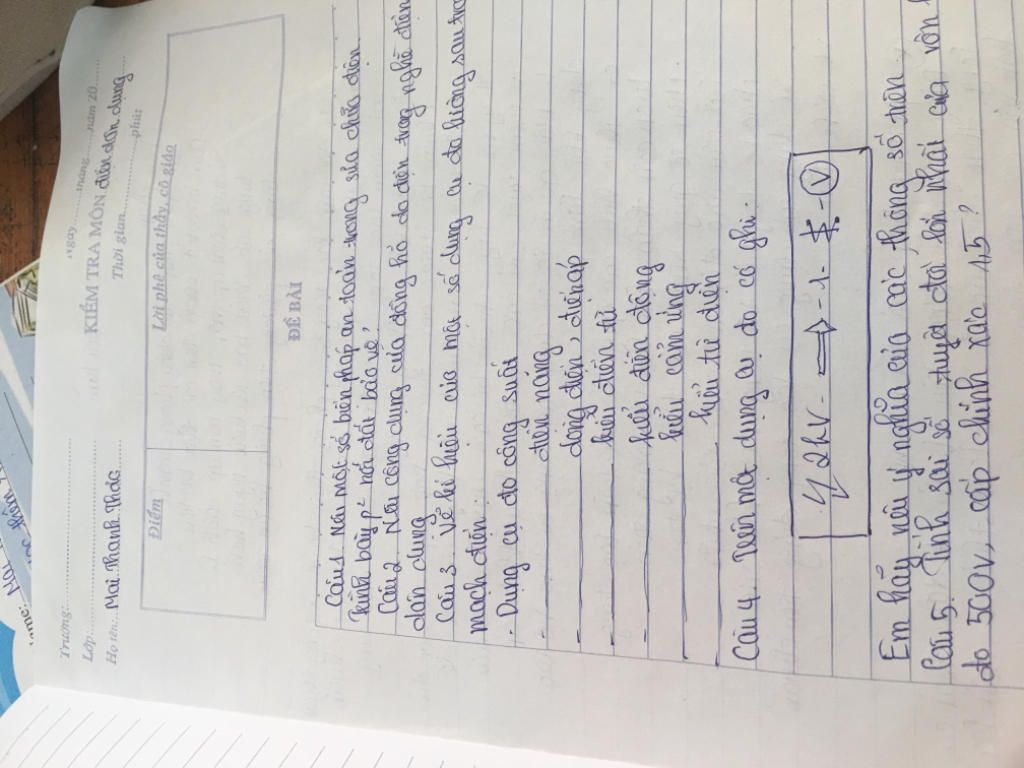 ngày............tháng..........năm 20......
KIỂM TRA MÔN điện dân dụng
Trường:
Lớp
Họ tên: Mai Thanh Thảo
Thời gian..............phút
Điểm
Lời phê của thầy, cô giáo
ĐỀ BÀI
Câu 1 Nêu một số biện pháp an toàn trong sửa chữa điện.
Trình bày p² nối đất bảo vệ,
Câu 2. Nêu công dụng của đồng hồ đo điện trong nghề điện
dân dụng
Câu 3 Vẽ kí hiệu của một số dụng cụ đo lường sau
mạch điện
- Dụng cụ đo công suất
- điện năng
- dòng điện, điện áp
- kiểu điện từ
- kiểu điện động
kiểu cảm ứng
kiểu từ điện
Câu 4. Trên một dụng cụ đo có ghi.
2kV - - 1. - V
Em hãy nêu ý nghĩa của các thông số trên
Câu 5. Tính sai số tuyệt đối lớn nhất của vôn
đo 500V, cấp chính xác 1,5?